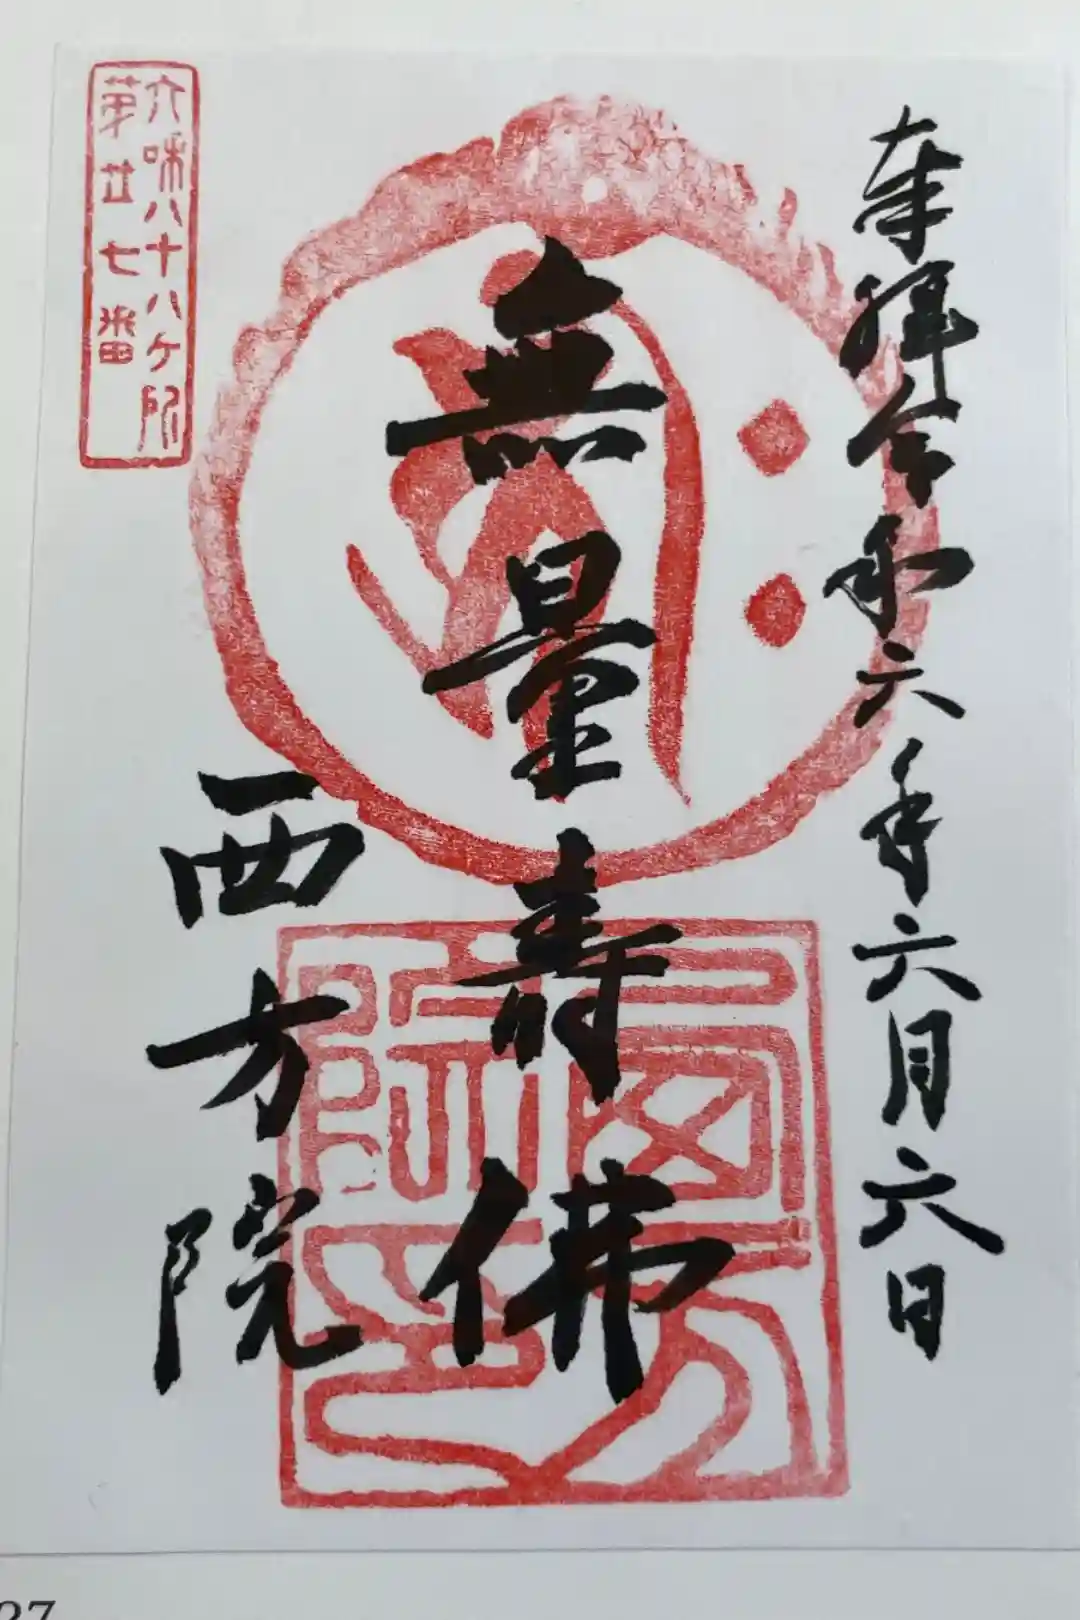 奉拜令和六年六月六日
無量壽佛
西方院
六味八十八ケ所
第廿七番
27